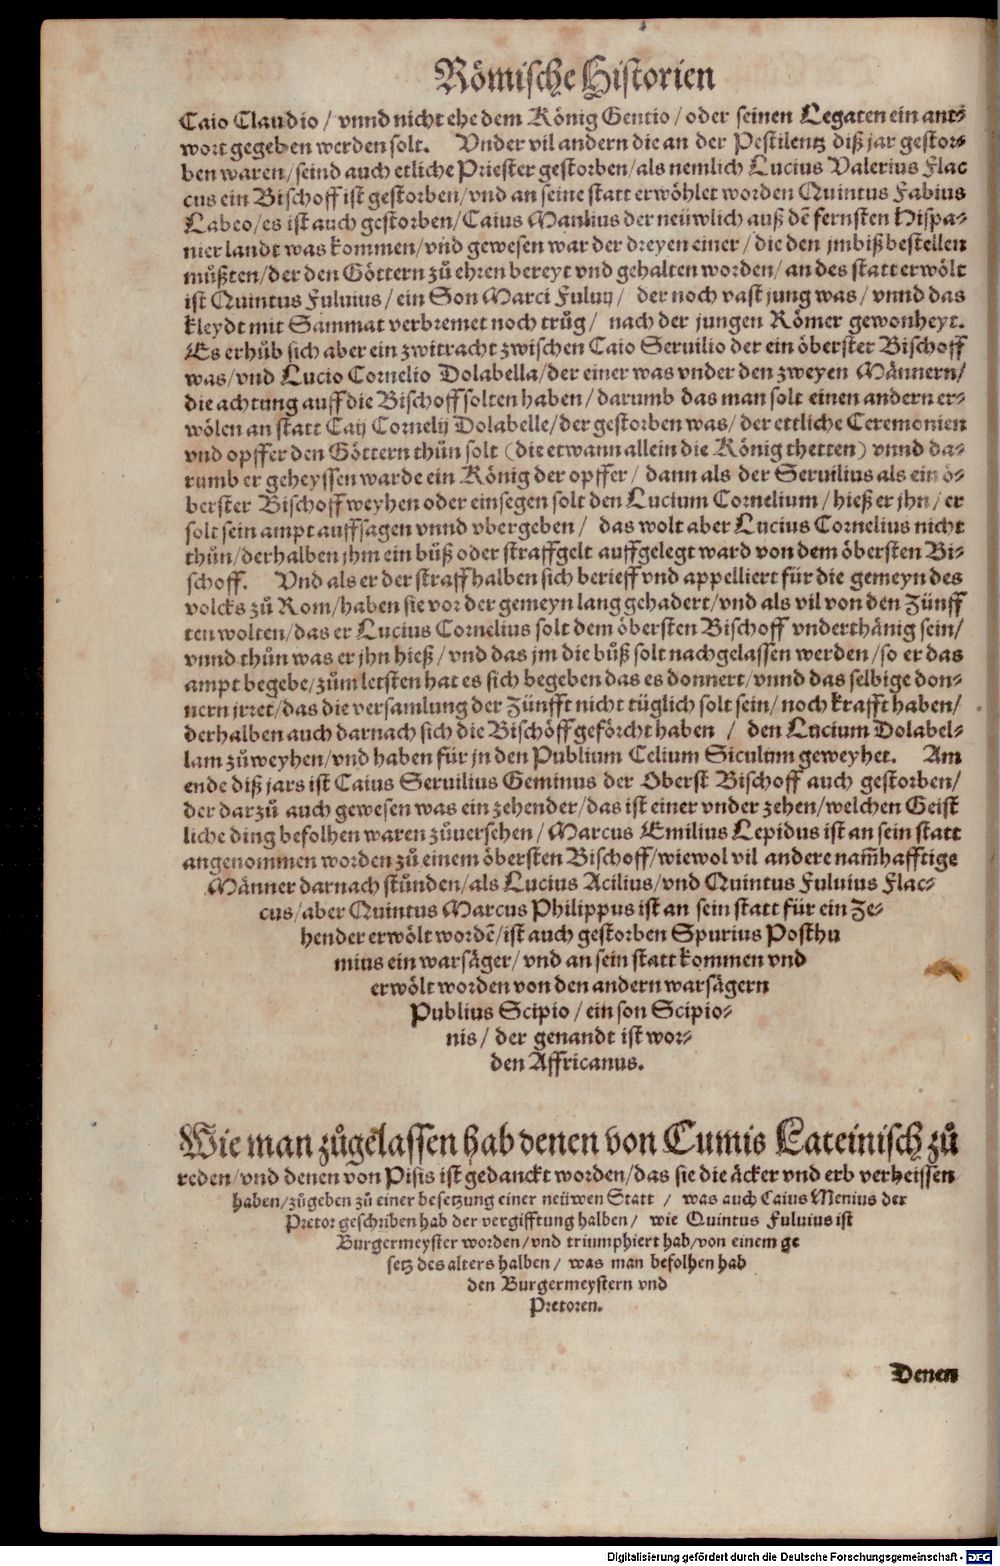 Römische Historien
Caio Claudio / vnnd nicht ehe dem König Gentio / oder seinen Legaten ein ant⸗
wort gegeben werden solt. Vnder vil andern die an der Pestilentz diß jar gestor⸗
ben waren / seind auch etliche Priester gestorben / als nemlich Lucius Valerius Flac
cus ein Bischoff ist gestorben / vnd an seine statt erwöhlet worden Quintus Fabius
Labeo / es ist auch gestorben / Caius Manlius der neüwlich auß dē fernsten Hispa⸗
nier landt was kommen / vnd gewesen war der dreyen einer / die den jmbiß bestellen
můßten / der den Göttern zů ehren bereyt vnd gehalten worden / an des statt erwölt
ist Quintus Fuluius / ein Son Marci Fuluij / der noch vast jung was / vnnd das
kleydt mit Sammat verbremet noch trůg / nach der jungen Römer gewonheyt.
Es erhůb sich aber ein zwitracht zwischen Caio Seruilio der ein öberster Bischoff
was / vnd Lucio Cornelio Dolabella / der einer was vnder den zweyen Männern /
die achtung auff die Bischoff solten haben / darumb das man solt einen andern er⸗
wölen an statt Caij Cornelij Dolabelle / der gestorben was / der ettliche Ceremonien
vnd opffer den Göttern thůn solt (die etwann allein die König thetten) vnnd da⸗
rumb er geheyssen warde ein König der opffer / dann als der Seruilius als ein ö⸗
berster Bischoff weyhen oder einsegen solt den Lucium Cornelium / hieß er jhn / er
solt sein ampt auffsagen vnnd vbergeben / das wolt aber Lucius Cornelius nicht
thůn / derhalben jhm ein bůß oder straffgelt auffgelegt ward von dem öbersten Bi⸗
schoff. Vnd als er der straff halben sich berieff vnd appelliert für die gemeyn des
volcks zů Rom / haben sie vor der gemeyn lang gehadert / vnd als vil von den Zünff
ten wolten / das er Lucius Cornelius solt dem öbersten Bischoff vnderthänig sein /
vnnd thůn was er jhn hieß / vnd das jm die bůß solt nachgelassen werden / so er das
ampt begebe / zům letsten hat es sich begeben das es donnert / vnnd das selbige don⸗
nern jrret / das die versamlung der Zünfft nicht tüglich solt sein / noch krafft haben /
derhalben auch darnach sich die Bischöff geförcht haben / den Lucium Dolabel⸗
lam zůweyhen / vnd haben für jn den Publium Celium Siculum geweyhet. Am
ende diß jars ist Caius Seruilius Geminus der Oberst Bischoff auch gestorben /
der darzů auch gewesen was ein zehender / das ist einer vnder zehen / welchen Geist
liche ding befolhen waren zůuersehen / Marcus Emilius Lepidus ist an sein statt
angenommen worden zů einem öbersten Bischoff / wiewol vil andere nam̄hafftige
Männer darnach stůnden / als Lucius Acilius / vnd Quintus Fuluius Flac⸗
cus / aber Quintus Marcus Philippus ist an sein statt für ein Ze⸗
hender erwölt wordē / ist auch gestorben Spurius Posthu
mius ein warsäger / vnd an sein statt kommen vnd
erwölt worden von den andern warsägern
Publius Scipio / ein son Scipio⸗
nis / der genandt ist wor⸗
den Affricanus.
Wie man zůgelassen hab denen von Cumis Lateinisch zů
reden / vnd denen von Pisis ist gedanckt worden / das sie die äcker vnd erb verheissen
haben / zůgeben zů einer besetzung einer neüwen Statt / was auch Caius Menius der
Pretor geschriben hab der vergifftung halben / wie Quintus Fuluius ist
Burgermeyster worden / vnd triumphiert hab / von einem ge
setz des alters halben / was man befolhen hab
den Burgermeystern vnd
Pretoren.
Denen
Digitalisierung gefördert durch die Deutsche Forschungsgemeinschaft - DFG